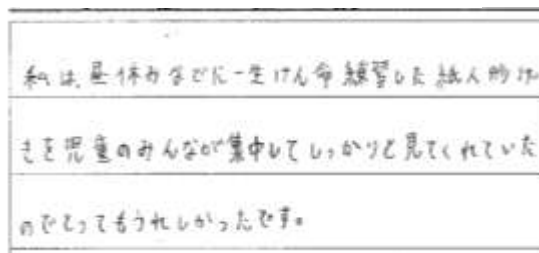 私は、昼休みなどに一生けん命練習した紙人形げ
きを児童のみんなが集中してしっかりと見てくれていた
のでとってもうれしかったです。